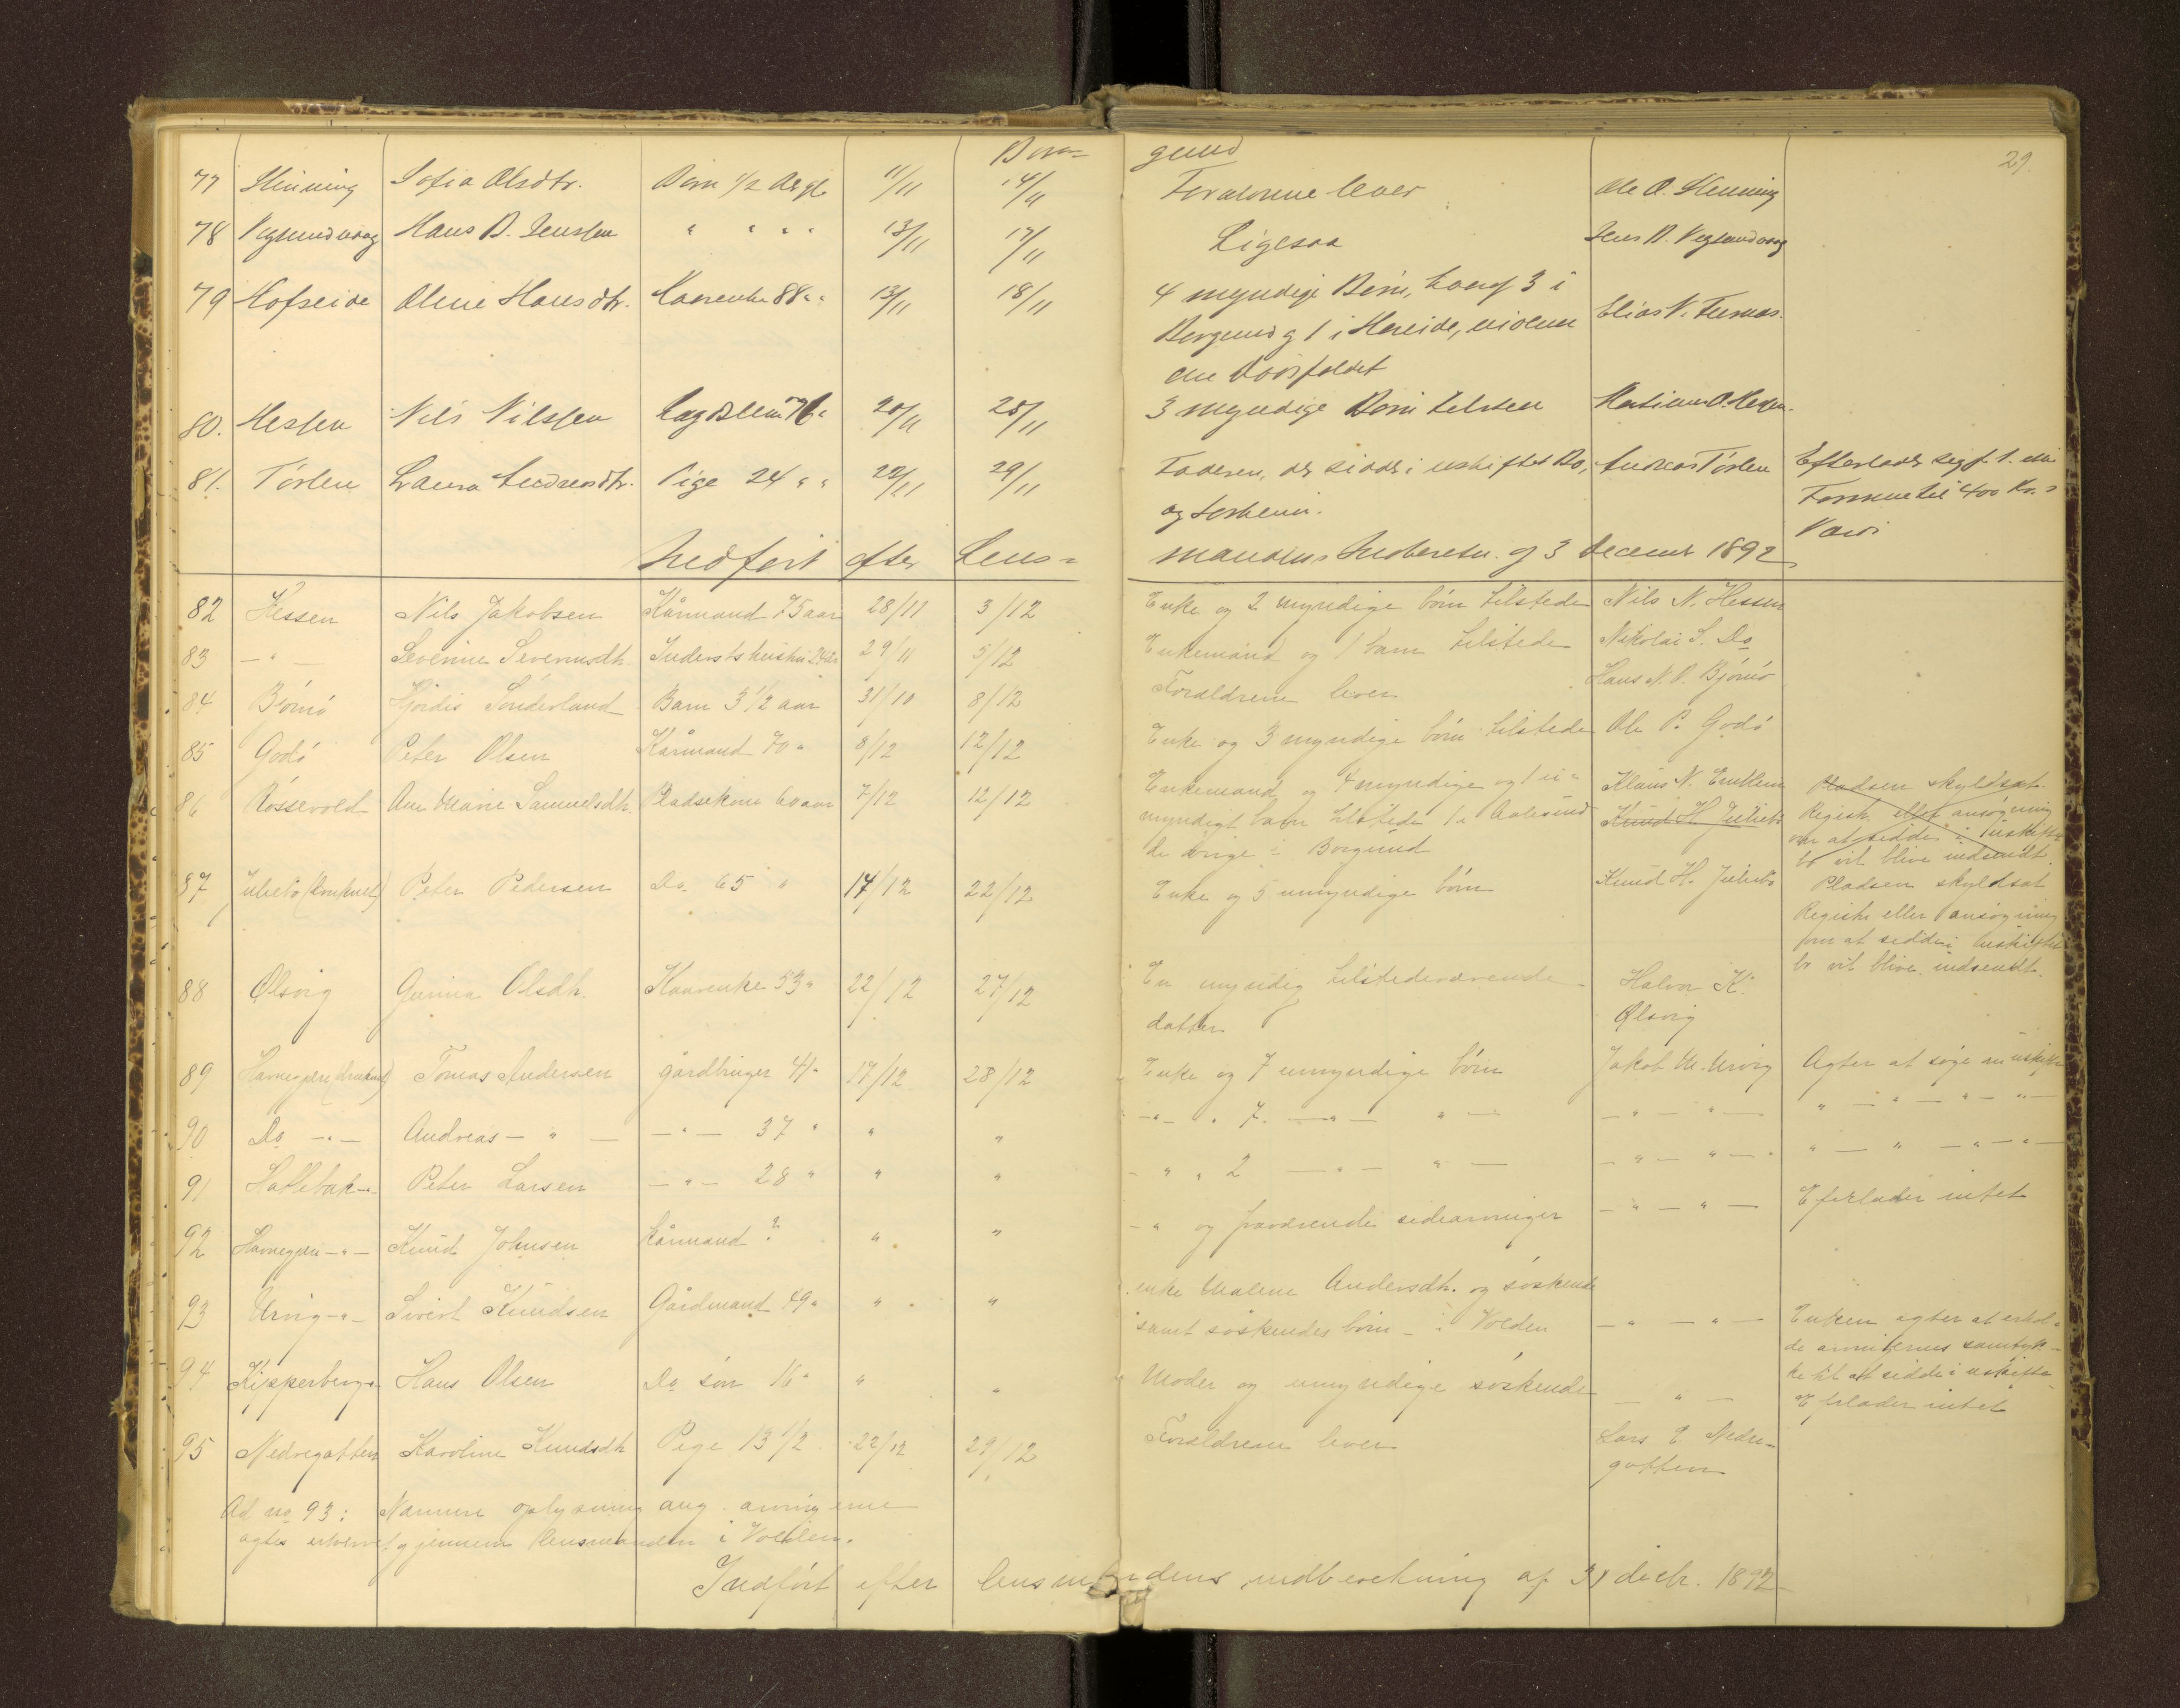 Bor-gund
29.
77 Slinning Sofia Olsdtr. Barn 1/2 Aar gl. 11/11 14/11 Forældrene lever Ole O. Slinning
78 Vegsundvaag Hans B. Jenssen " " " " 13/11 17/11 Ligesaa Jens B. Vegsundvaag
79 Hofseide Oline Hansdtr. Kaarenke 88 " " 13/11 18/11 4 myndige Børn, hvoraf 3 i Elias N.
Borgund og 1 i Hareide,
80. Hessen Nils Nilssen Lægdslem 76 " 20/11 25/11 3 myndige Børn tilstede O. Hessen
81. Tørlen Laura Andreasdtr. Pige 24 " " 22/11 29/11 Faderen, der sidder i uskiftet Bo, Andreas Tørlen Efterlader sig f. 1.
og Søskenn. Formue til 400 Kr.s
Værdi
Indført efter Lens=mandens Indberetn. af 3 december 1892
82 Hessen Nils Jakobsen Kårmand 75 aar 28/11 3/12 Enke og 2 myndige børn tilstede Nils N. Hessen
83 - " - Severine Severinsdtr. Inderstshustru 24 aar 29/11 5/12 Enkemand og 1 barn tilstede Nikolai S. Do
84 Bjørnø Hjørdis Sønderland Barn 3 1/2 aar 31/10 8/12 Forældrene lever Hans N. P. Bjørnø
85 Godø Peter Olsen Kårmand 70 " 8/12 12/12 Enke og 3 myndige børn tilstede Ole P. Godø
86 Røssevold Ane Marie Samuelsdtr. Pladsekone 60 aar 7/12 12/12 Enkemand og 4 myndige og 1 u= Klaus N. Emblem Pladsen skyldsat.
myndigt barn tilstede 1 i Aalesund Knud H. Juliebø Registr. eller ansøgning
de øvrige i Borgund om at sidde i uskiftet
bo vil blive indsendt.
87 Juliebø (druknet) Peter Pedersen Do 65 " 14/12 22/12 Enke og 5 umyndige børn Knud H. Juliebø Pladsen skyldsat
Registr. eller ansøgning
om at sidde i uskiftet
bo vil blive indsendt.
88 Ølsvig Gunna Olsdtr. Kaarenke 53 " 22/12 27/12 En myndig tilstedeværende Halvor K.
datter Ølsvig
89 Havnegjære (druknet) Tomas Andersen gårdbruger 41 " 17/12 28/12 Enke og 7 umyndige børn Jakob M. Urvig Agter at søge om uskifte
90 Do - " - Andreas - " - - " - 37 " " " - " - " 7. - " - " - - " - " - " - " - " - " -
91 Hallebak - " - Peter Larsen - " - 28 " " " - " " 2 - " - " - - " - " - " " - " - " - " -
92 Havnegjære - " - Knud Johnsen kårmand ? " " - " og fraværende sidearvinger - " - " - Eferlader intet
93 Urvig - " - Sivert Knudsen Gårdmand 49 " " " enke Malene Andersdtr. og søskende
samt søskendes børn - i Volden - " - " - Enken agter at erhol=
de arvingernes samtyk-
ke til at sidde i uskifte
94 Kipperberg - " Hans Olsen Do søn 16 " " " Moder og umyndige søskende - " - Eferlader intet
95 Nedregotten Karoline Knudsdtr. Pige 13 1/2 22/12 29/12 Forældrene lever Lars E. Nedre-
gotten
Ad no 93: Nærmere oplysning ang. arvingerne
agtes erhvervet gjennem lensmanden i Volden.
Indført efter lensmandens indberetning af 31 decbr. 1892